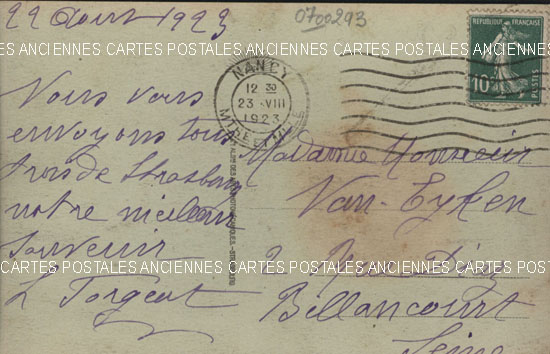 22 Aout 1923
0700293
REPUBLIQUE FRANÇAISE
10
POSTES
NANCY
12 30
23 - VIII
1923
CARTES POSTALES ANCIENNES CARTES POSTALES ANCIENNES CARTES POSTALES ANCIENNES
Nous vous
envoyons tous
trois de Strasbourg
notre meilleur
souvenir
L Torgeot
Madame Monsieur
Van-Eyken
2 Rue
Billancourt
Seine
CARTES POSTALES ANCIENNES CARTES POSTALES ANCIENNES CARTES POSTALES ANCIENNES